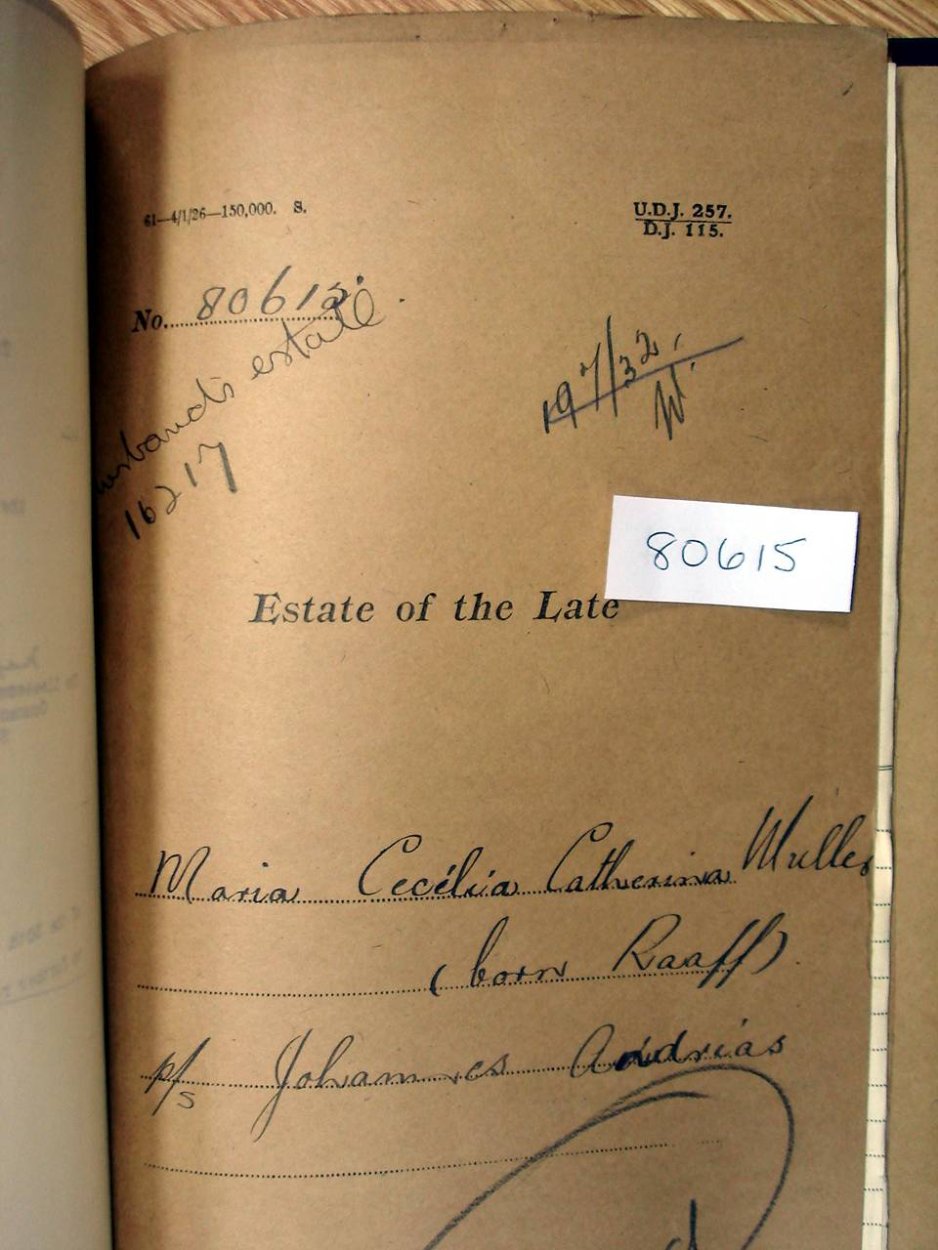 61—4/1/26—150,000. S.
U.D.J. 257.
D.J. 115.
No. 80615.
husband's estate
16217
197/32.
80615
Estate of the Late
Maria Cecélia Catherina Muller
(born Raaff)
p/s Johannes Andrias